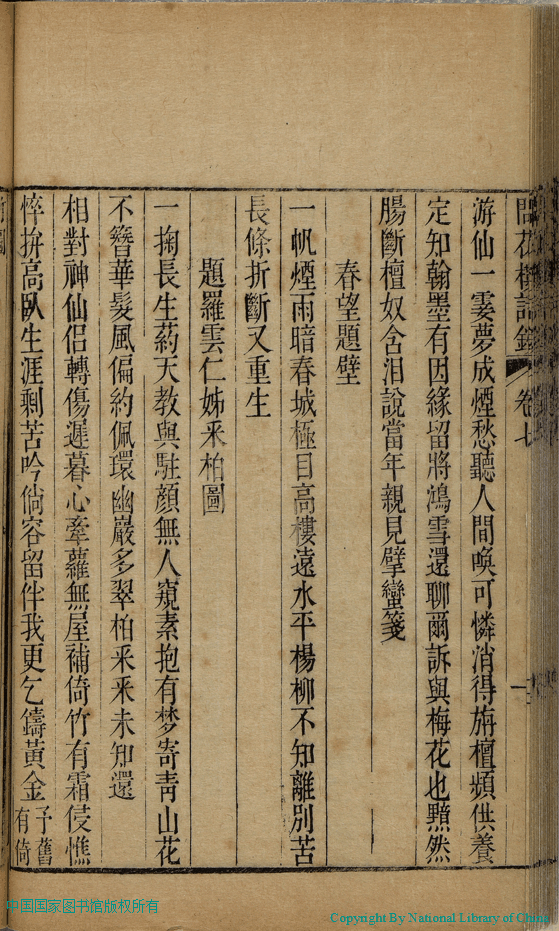 問花樓詩鈔 卷七
游仙一霎夢成煙愁聽人間喚可憐消得旃檀頻供養
定知翰墨有因緣留將鴻雪還聊爾訴與梅花也黯然
腸斷檀奴含泪說當年親見擘蠻箋
春望題壁
一帆煙雨暗春城極目高樓遠水平楊柳不知離別苦
長條折斷又重生
題羅雲仁姊采柏圖
一掬長生葯天教與駐顏無人窺素抱有梦寄青山花
不簪華髮風偏約佩環幽巖多翠柏采采未知還
相對神仙侶轉傷遲暮心牽蘿無屋補倚竹有霜侵憔
悴拚高臥生涯剩苦吟倘容留伴我更乞鑄黃金予舊
有倚
中国国家图书馆版权所有
Copyright By National Library of China